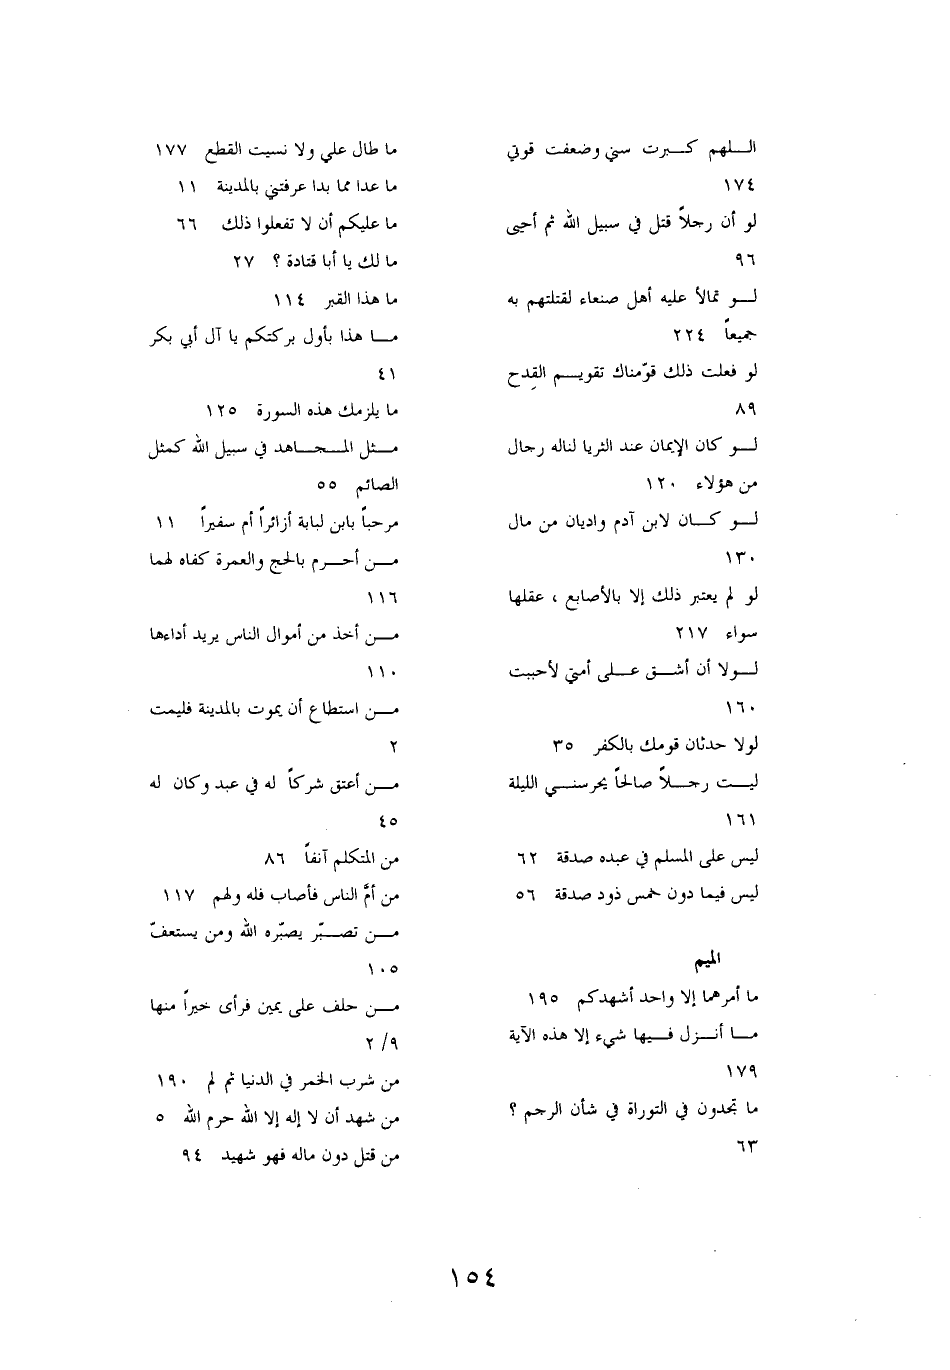 اللهم كبرت سني وضعفت قوتي
١٧٤
لو أن رجلاً قتل في سبيل الله ثم أحيى
٩٦
لو تمالأ عليه أهل صنعاء لقتلتهم به
جميعاً ٢٢٤
لو فعلت ذلك قوّمناك تقويم القِدح
٨٩
لو كان الإيمان عند الثريا لناله رجال
من هؤلاء ١٢٠
لو كان لابن آدم واديان من مال
١٣٠
لو لم يعتبر ذلك إلا بالأصابع ، عقلها
سواء ٢١٧
لولا أن أشق على أمتي لأحببت
١٦٠
لولا حدثان قومك بالكفر ٣٥
ليت رجلاً صالحاً يحرسني الليلة
١٦١
ليس على المسلم في عبده صدقة ٦٢
ليس فيما دون خمس ذود صدقة ٥٦
الميم
ما أمرهما إلا واحد أشهدكم ١٩٥
ما أنزل فيها شيء إلا هذه الآية
١٧٩
ما تجدون في التوراة في شأن الرجم ؟
٦٣
ما طال علي ولا نسيت القطع ١٧٧
ما عدا مما بدا عرفتني بالمدينة ١١
ما عليكم أن لا تفعلوا ذلك ٦٦
ما لك يا أبا قتادة ؟ ٢٧
ما هذا القبر ١١٤
ما هذا بأول بركتكم يا آل أبي بكر
٤١
ما يلزمك هذه السورة ١٢٥
مثل المجاهد في سبيل الله كمثل
الصائم ٥٥
مرحباً بابن لبابة أزائراً أم سفيراً ١١
من أحرم بالحج والعمرة كفاه لهما
١١٦
من أخذ من أموال الناس يريد أداءها
١١٠
من استطاع أن يموت بالمدينة فليمت
٢
من أعتق شركاً له في عبد وكان له
٤٥
من المتكلم آنفاً ٨٦
من أمَّ الناس فأصاب فله ولهم ١١٧
من تصبّر يصبّره الله ومن يستعفّ
١٠٥
من حلف على يمين فرأى خيراً منها
٢/٩
من شرب الخمر في الدنيا ثم لم ١٩٠
من شهد أن لا إله إلا الله حرم الله ٥
من قتل دون ماله فهو شهيد ٩٤
١٥٤